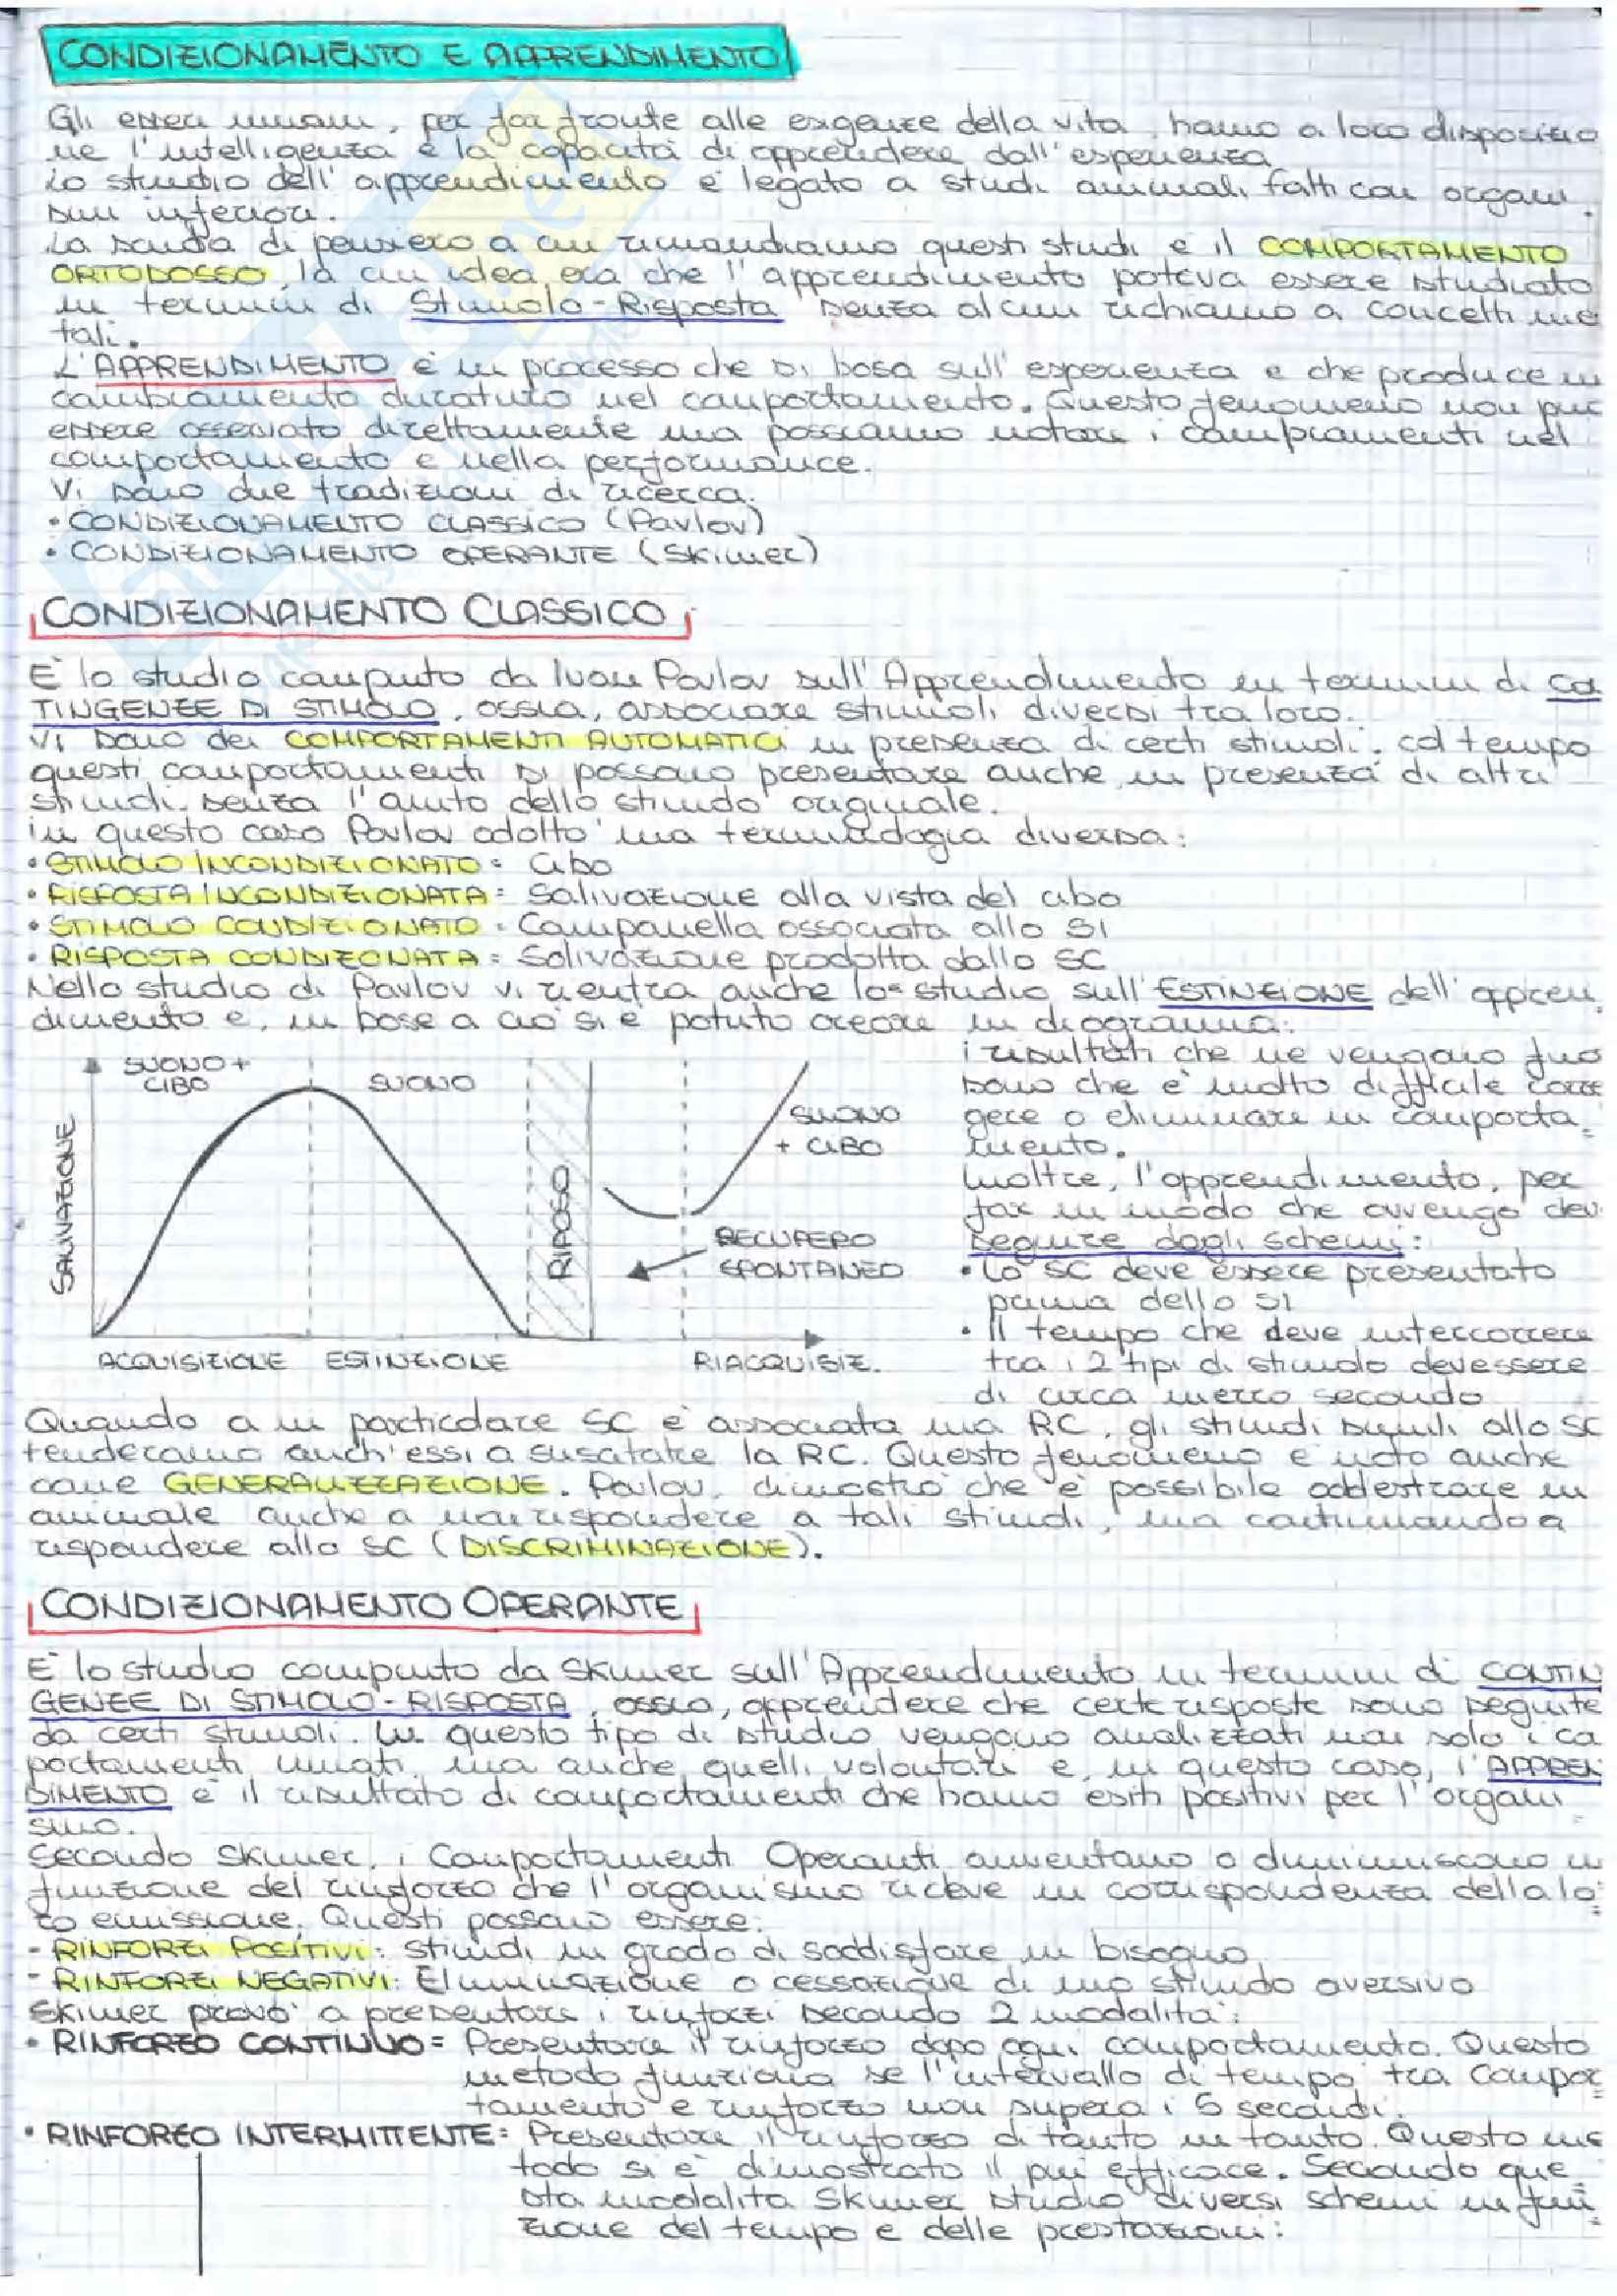 CONDIZIONAMENTO E APPRENDIMENTO
Gli esseri umani, per far fronte alle esigenze della vita, hanno a loro disposizio
ne l'intelligenza e la capacità di apprendere dall'esperienza
Lo studio dell'apprendimento è legato a studi animali fatti con organi
smi inferiori.
La scuola di pensiero a cui rimandiamo questi studi è il COMPORTAMENTO
ORTODOSSO, la cui idea era che l'apprendimento poteva essere studiato
in termini di Stimolo-Risposta senza alcun richiamo a concetti me
tali.
L'APPRENDIMENTO è un processo che si basa sull'esperienza e che produce un
cambiamento duraturo nel comportamento. Questo fenomeno non può
essere osservato direttamente ma possiamo notare i cambiamenti nel
comportamento e nella performance.
Vi sono due tradizioni di ricerca:
• CONDIZIONAMENTO CLASSICO (Pavlov)
• CONDIZIONAMENTO OPERANTE (Skinner)
CONDIZIONAMENTO CLASSICO
È lo studio compiuto da Ivan Pavlov sull'Apprendimento in termini di CO
TINGENZE DI STIMOLO, ossia, associare stimoli diversi tra loro.
Vi sono dei COMPORTAMENTI AUTOMATICI in presenza di certi stimoli, col tempo
questi comportamenti si possono presentare anche in presenza di altri
stimoli, senza l'aiuto dello stimolo originale.
In questo caso Pavlov adottò una terminologia diversa:
• STIMOLO INCONDIZIONATO = Cibo
• RISPOSTA INCONDIZIONATA = Salivazione alla vista del cibo
• STIMOLO CONDIZIONATO = Campanella associata allo SI
• RISPOSTA CONDIZONATA = Salivazione prodotta dallo SC
Nello studio di Pavlov vi rientra anche lo studio sull'ESTINZIONE dell'appren
dimento e, in base a ciò si è potuto creare un diagramma:
i risultati che ne vengono fuo
sono che è molto difficile corre
gere o eliminare un comporta
mento.
Inoltre, l'apprendimento, per
far in modo che avvenga dev
seguire degli schemi:
• Lo SC deve essere presentato
prima dello SI
• Il tempo che deve intercorrere
tra i 2 tipi di stimolo devessere
di circa mezzo secondo
SUONO +
CIBO
SUONO
SALIVAZIONE
RIPOSO
SUONO
+ CIBO
RECUPERO
SPONTANEO
ACQUISIZIONE ESTINZIONE RIACQUISIZ.
Quando a un particolare SC è associata una RC, gli stimoli simili allo SC
tenderanno anch'essi a suscitare la RC. Questo fenomeno è noto anche
come GENERALIZZAZIONE. Pavlov, dimostrò che è possibile addestrare un
animale anche a non rispondere a tali stimoli, ma continuando a
rispondere allo SC (DISCRIMINAZIONE).
CONDIZIONAMENTO OPERANTE
È lo studio compiuto da Skinner sull'Apprendimento in termini di CONTIN
GENZE DI STIMOLO-RISPOSTA, ossia, apprendere che certe risposte sono seguite
da certi stimoli. In questo tipo di studio vengono analizzati non solo i co
portamenti innati, ma anche quelli volontari e, in questo caso, l'APPREN
DIMENTO è il risultato di comportamenti che hanno esiti positivi per l'organi
smo.
Secondo Skinner, i Comportamenti Operanti aumentano o diminuiscono in
funzione del rinforzo che l'organismo riceve in corrispondenza della lo
ro emissione. Questi possono essere:
- RINFORZI POSITIVI: Stimoli in grado di soddisfare un bisogno
- RINFORZI NEGATIVI: Eliminazione o cessazione di uno stimolo aversivo
Skinner provò a presentare i rinforzi secondo 2 modalità:
• RINFORZO CONTINUO = Presentare il rinforzo dopo ogni comportamento. Questo
metodo funziona se l'intervallo di tempo tra compor
tamento e rinforzo non supera i 5 secondi.
• RINFORZO INTERMITTENTE = Presentare il rinforzo di tanto in tanto. Questo me
todo si è dimostrato il più efficace. Secondo que
sta modalità Skinner studiò diversi schemi in fun
zione del tempo e delle prestazioni: